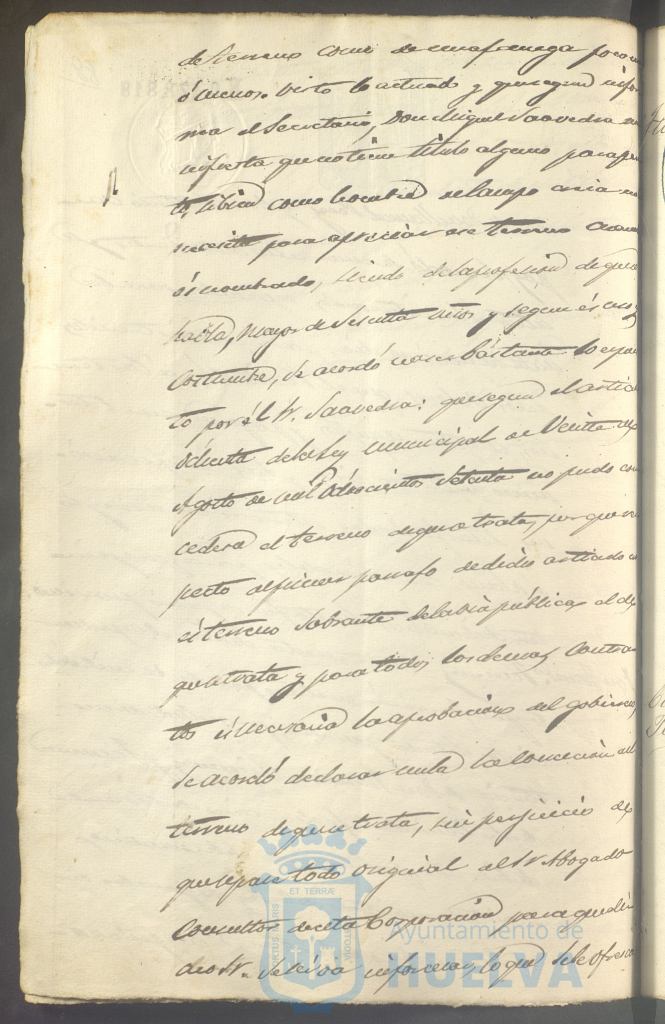 de terreno como de una fanega poco
ó menos. Visto lo actuado y que segun infor
ma el Secretario, Don Miguel Saavedra ma
nifiesta que no tiene titulo alguno para
si bien como hombre del campo
necesita para apreciar ese terreno
ós nombrado, siendo de la profesion de que se
habla, mayor de sesenta años y segun és uso y
costumbre, se acordó bastante lo espues
to por él Sr. Saavedra: que segun el articu
ochenta de la Ley municipal de Veinte de
Agosto de mil ochocientos setenta no pudo con
cederse el terreno de que se trata, por que res
pecto al primer parrafo de dicho articulo no
és terreno sobrante de la via pública el de
que se trata y para todos los demas contra
tos és necesaria la aprobacion del gobierno,
se acordó declarar nula la concecion del
terreno de que se trata, sin perjuicio de
que pase todo original al Sr. Abogado
Consultor de esta Corporacion para que di
cho Sr. se sirva informar lo que se le ofresca
ET TERRÆ
Ayuntamiento de
HUELVA